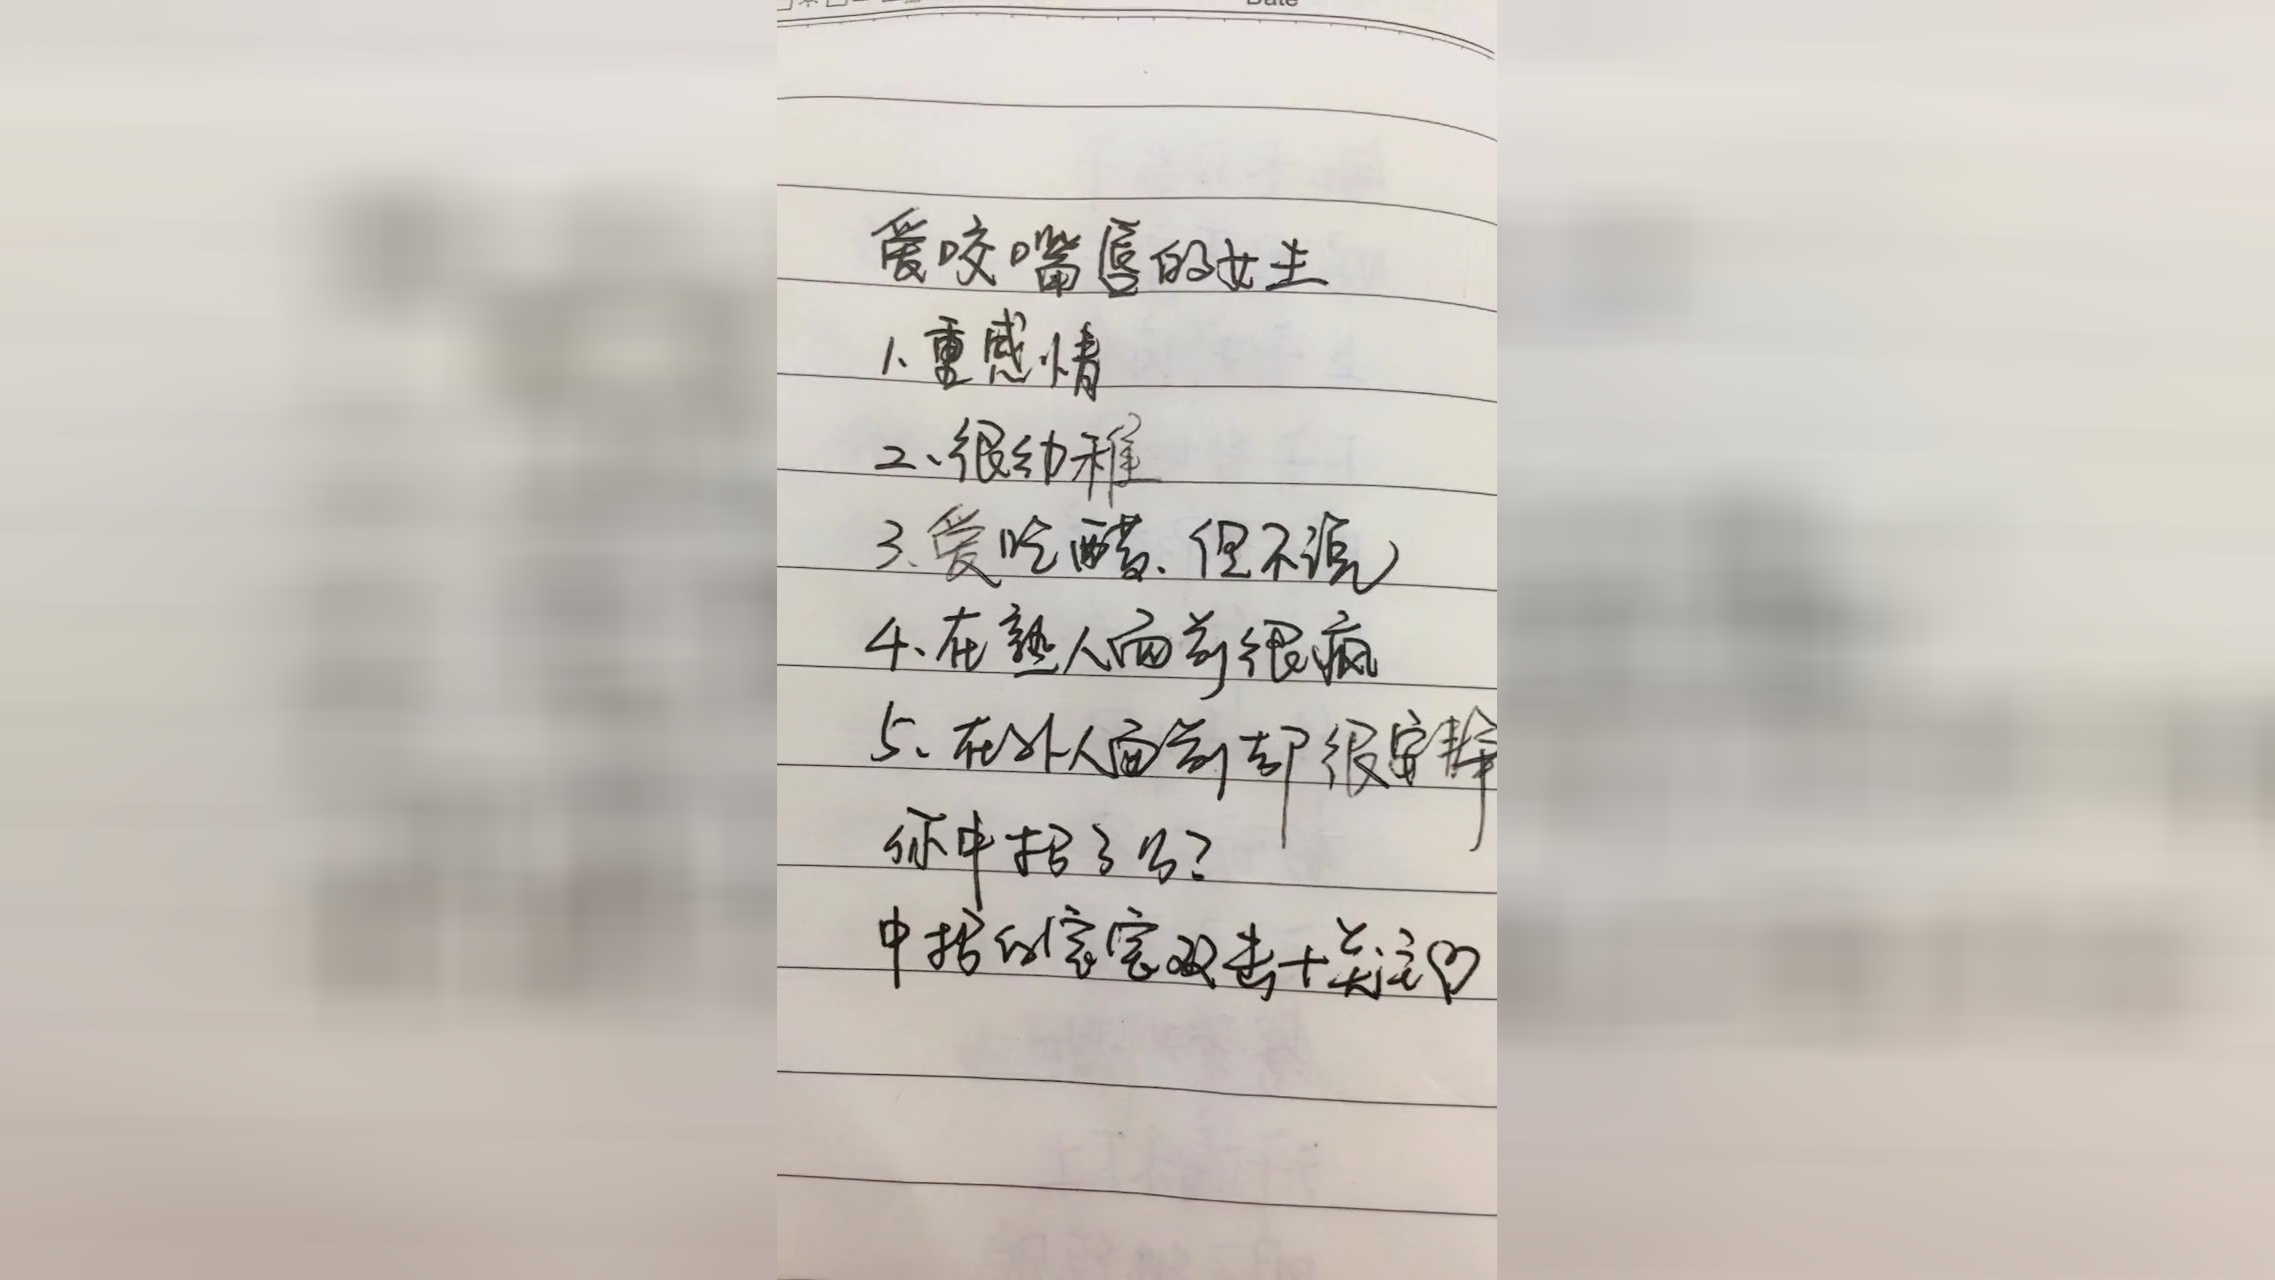 Date
爱咬嘴唇的女生
1、重感情
2、很幼稚
3、爱吃醋、但不说
4、在熟人面前很疯
5、在外人面前却很安静
你中招了吗?
中招的宝宝双击+关注♡